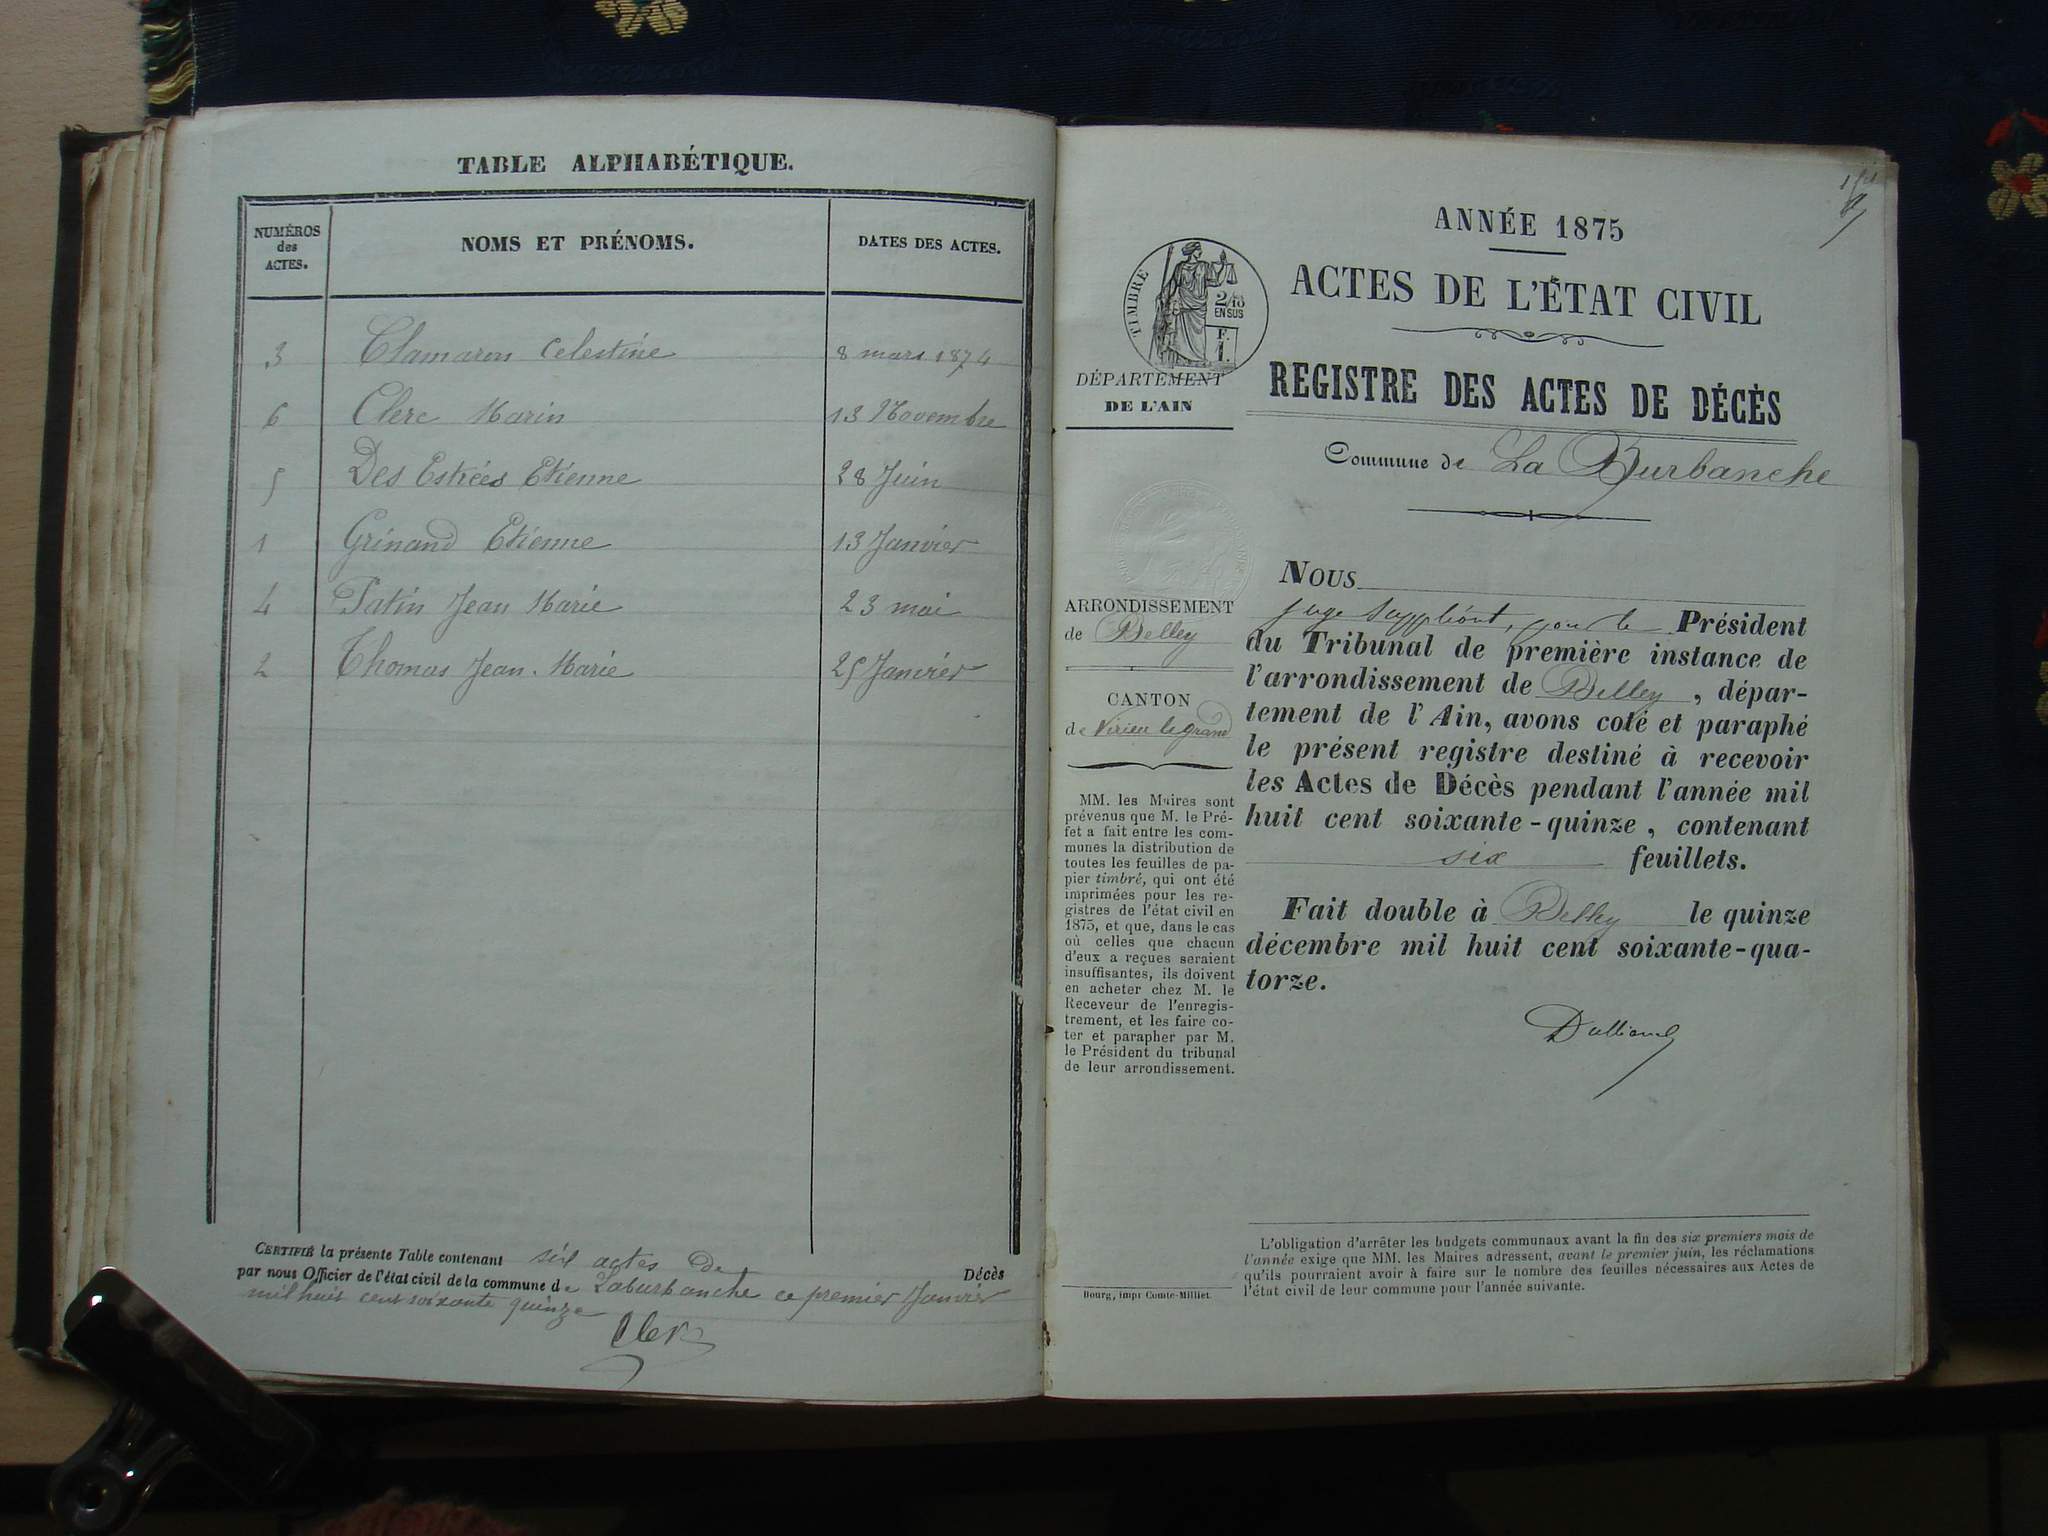 TABLE ALPHABÉTIQUE.
NUMÉROS
des
ACTES.
NOMS ET PRÉNOMS.
DATES DES ACTES.
3 Clamaron Celestine 8 mars 1874
6 Clerc Marin 13 Novembre
5 Des Estrées Etienne 28 Juin
1 Grinand Etienne 13 Janvier
4 Patin Jean Marie 23 mai
2 Thomas Jean-Marie 25 Janvier
CERTIFIÉ la présente Table contenant six actes de Décès
par nous Officier de l'état civil de la commune de Laburbanche ce premier Janvier
mil huit cent soixante quinze
Clerc
ANNÉE 1875
ACTES DE L'ÉTAT CIVIL
REGISTRE DES ACTES DE DÉCÈS
Commune de La Burbanche
TIMBRE
2/10
EN SUS
DÉPARTEMENT
DE L'AIN
ARRONDISSEMENT
de Belley
CANTON
de Virieu le grand
MM. les Maires sont
prévenus que M. le Pré-
fet a fait entre les com-
munes la distribution de
toutes les feuilles de pa-
pier timbré, qui ont été
imprimées pour les re-
gistres de l'état civil en
1875, et que, dans le cas
où celles que chacun
d'eux a reçues seraient
insuffisantes, ils doivent
en acheter chez M. le
Receveur de l'enregis-
trement, et les faire co-
ter et parapher par M.
le Président du tribunal
de leur arrondissement.
Bourg, impr Comte-Milliet.
NOUS
juge suppléant, pour le Président
du Tribunal de première instance de
l'arrondissement de Belley, dépar-
tement de l'Ain, avons coté et paraphé
le présent registre destiné à recevoir
les Actes de Décès pendant l'année mil
huit cent soixante-quinze, contenant
six feuillets.
Fait double à Belley le quinze
décembre mil huit cent soixante-qua-
torze.
L'obligation d'arrêter les budgets communaux avant la fin des six premiers mois de
l'année exige que MM. les Maires adressent, avant le premier juin, les réclamations
qu'ils pourraient avoir à faire sur le nombre des feuilles nécessaires aux Actes de
l'état civil de leur commune pour l'année suivante.